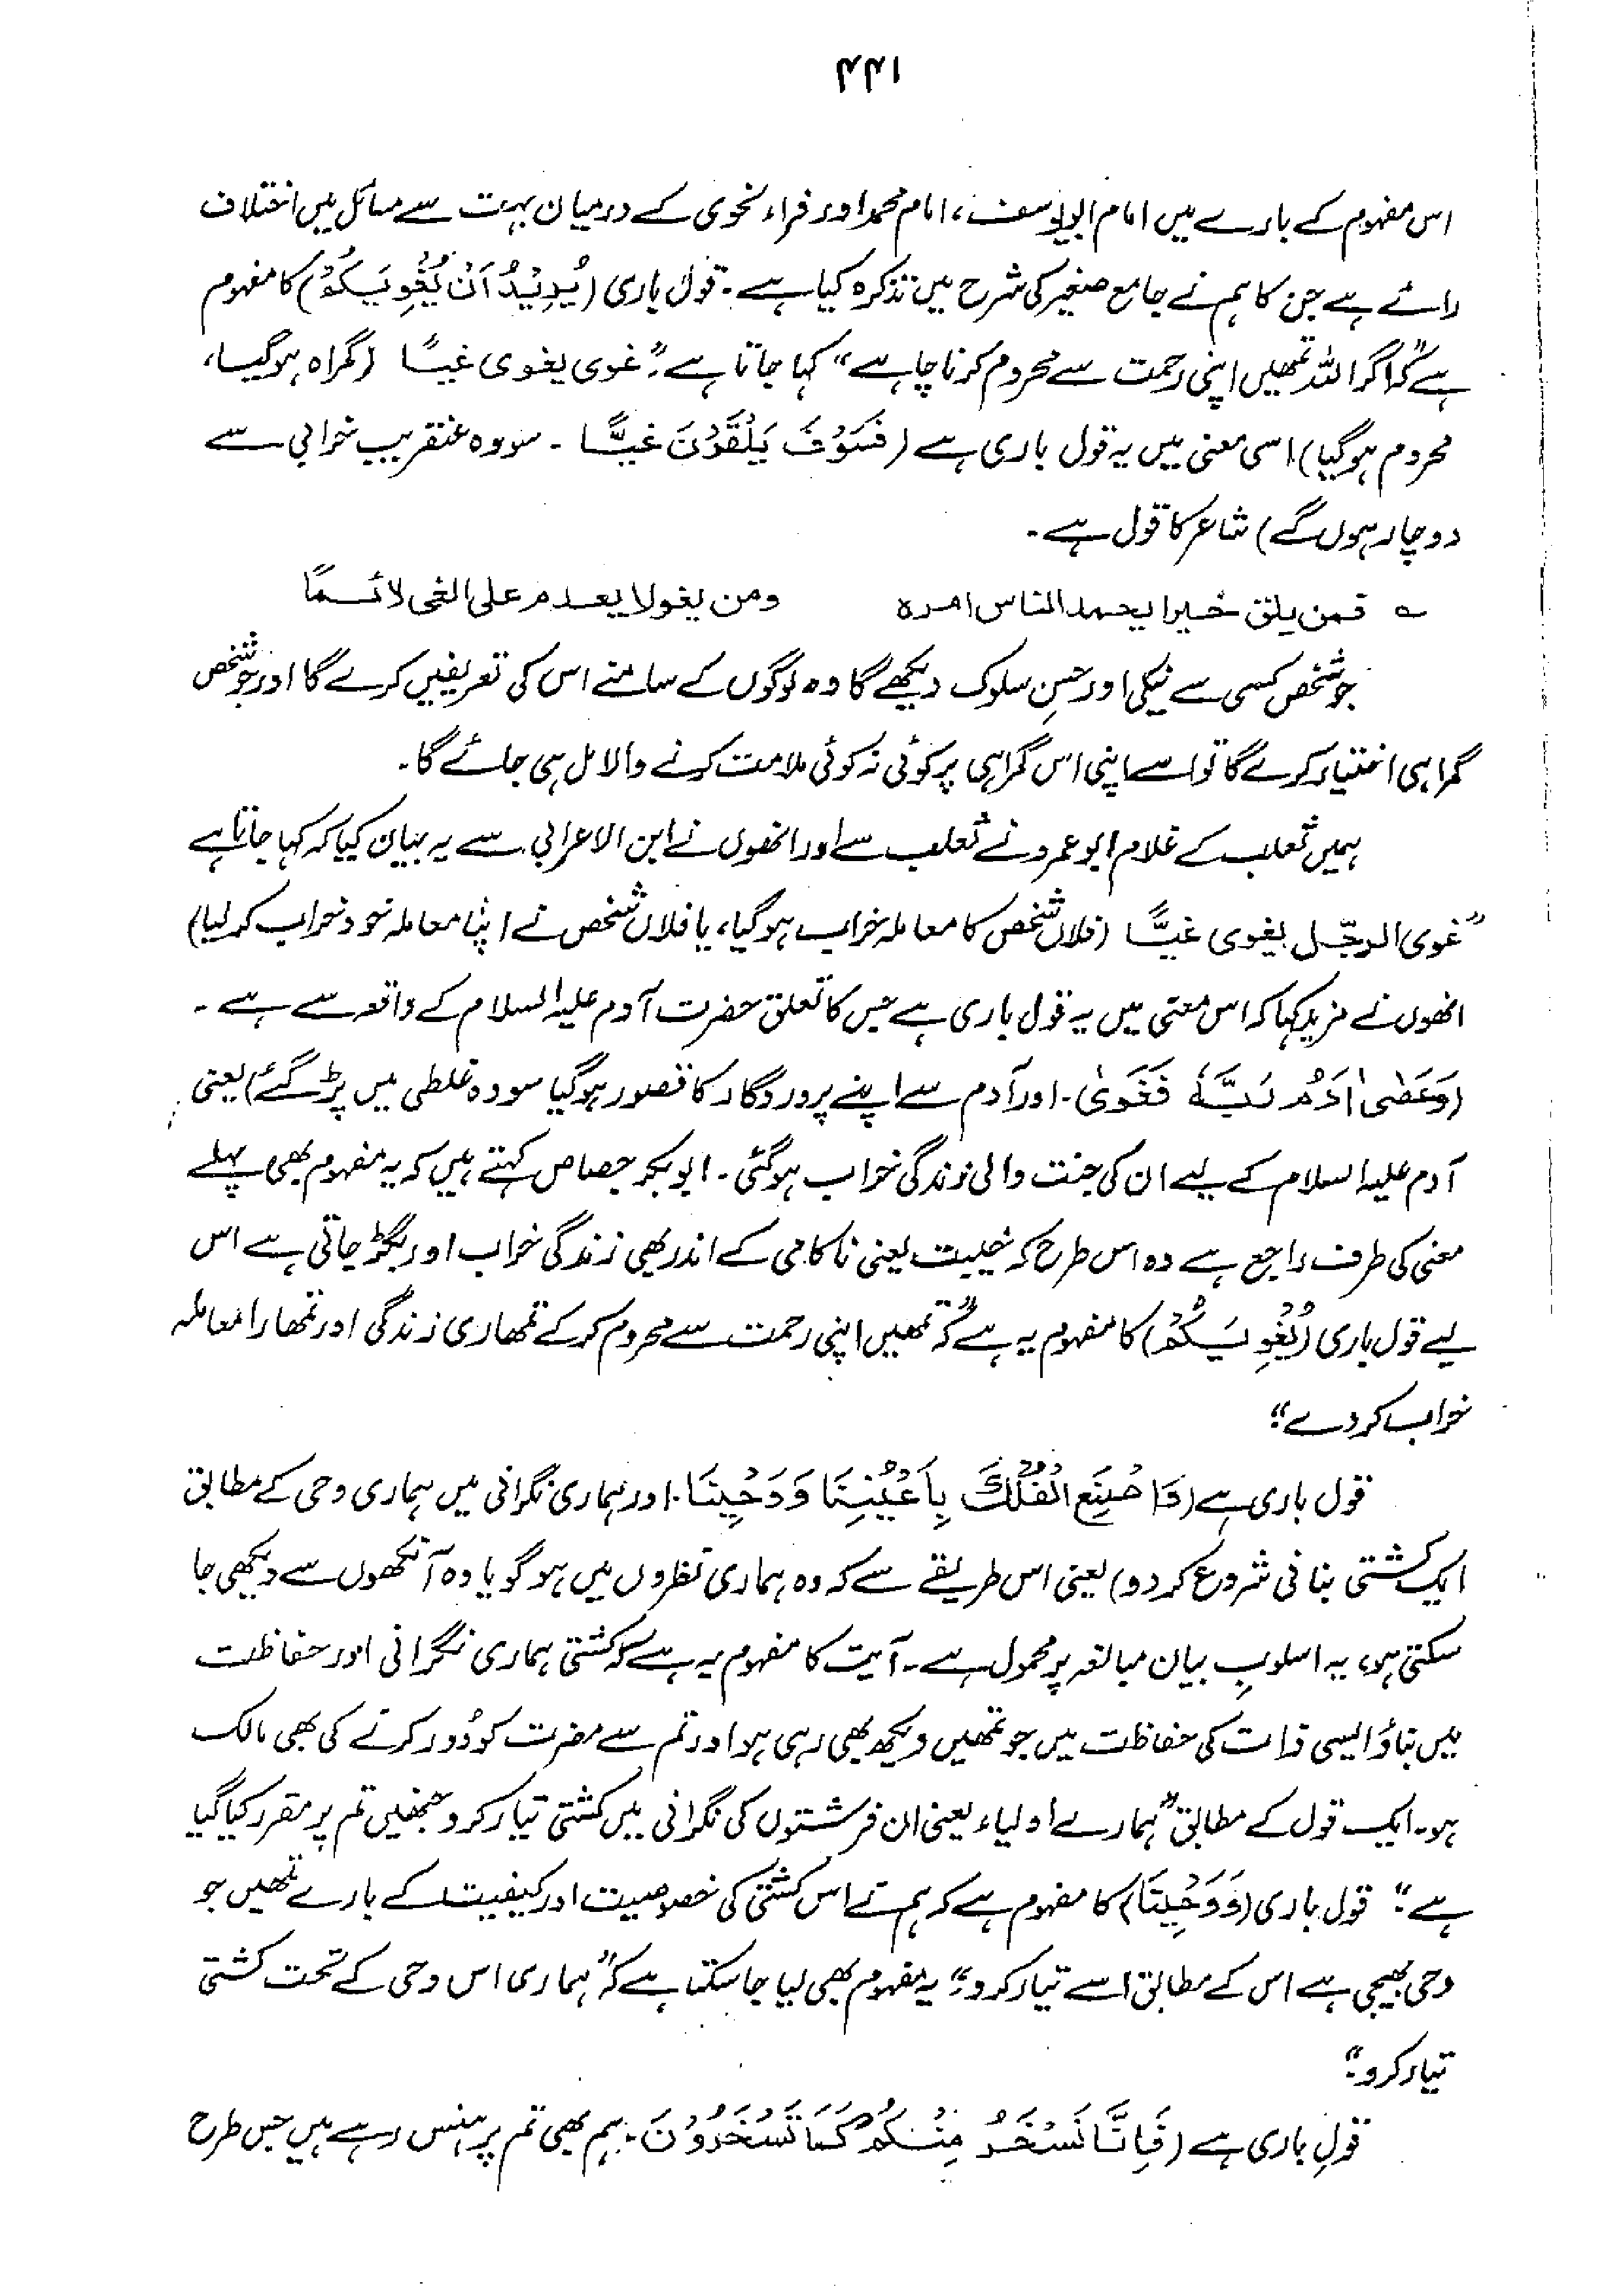 ۴۴۱
اس مفہوم کے بارے میں امام ابویوسف، امام محمد اور فراء نحوی کے درمیان بہت سے مسائل میں اختلاف
رائے ہے جن کا ہم نے جامع صغیر کی شرح میں تذکرہ کیا ہے۔ قول باری (یُرِیْدُ اَنْ یُّغْوِیَکُمْ) کا مفہوم
ہے "کہ اگر اللہ تمھیں اپنی رحمت سے محروم کرنا چاہے" کہا جاتا ہے "غوی یغوی غیًّا (گمراہ ہوگیا،
محروم ہوگیا) اسی معنی میں یہ قول باری ہے (فَسَوْفَ یَلْقَوْنَ غَیًّا ۔ سو وہ عنقریب خرابی سے
دوچار ہوں گے) شاعر کا قول ہے۔
؎ فمن یلق خیرا یحمد الناس امرہ ومن یغو لا یعدم علی الغی لائمًا
جو شخص کسی سے نیکی اور حسنِ سلوک دیکھے گا وہ لوگوں کے سامنے اس کی تعریفیں کرے گا اور جو شخص
گمراہی اختیار کرے گا تو اسے اپنی اس گمراہی پر کوئی نہ کوئی ملامت کرنے والا مل ہی جائے گا۔
ہمیں ثعلب کے غلام ابوعمرو نے ثعلب سے اور انھوں نے ابن الاعرابی سے یہ بیان کیا کہ کہا جاتا ہے
"غوی الرجّل یغوی غیًّا (فلاں شخص کا معاملہ خراب ہوگیا، یا فلاں شخص نے اپنا معاملہ خود خراب کر لیا)
انھوں نے مزید کہا کہ اس معنی میں یہ قول باری ہے جس کا تعلق حضرت آدم علیہ السلام کے واقعہ سے ہے۔
(وَعَصٰی اٰدَمُ رَبَّہٗ فَغَوٰی۔ اور آدم سے اپنے پروردگار کا قصور ہوگیا سو وہ غلطی میں پڑ گئے) یعنی
آدم علیہ السلام کے لیے ان کی جنت والی زندگی خراب ہوگئی۔ ابوبکر جصاص کہتے ہیں کہ یہ مفہوم بھی پہلے
معنی کی طرف راجع ہے وہ اس طرح کہ خیبت یعنی ناکامی کے اندر بھی زندگی خراب اور بگڑ جاتی ہے اس
لیے قول باری (یُغْوِیَکُمْ) کا مفہوم یہ ہے "کہ تمھیں اپنی رحمت سے محروم کرکے تمھاری زندگی اور تمھارا معاملہ
خراب کر دے"
قول باری ہے (وَاصْنَعِ الْفُلْکَ بِاَعْیُنِنَا وَوَحْیِنَا۔ اور ہماری نگرانی میں ہماری وحی کے مطابق
ایک کشتی بنانی شروع کر دو) یعنی اس طریقے سے کہ وہ ہماری نظروں میں ہو گویا وہ آنکھوں سے دیکھی جا
سکتی ہو، یہ اسلوبِ بیان مبالغہ پر محمول ہے۔ آیت کا مفہوم یہ ہے کہ "کشتی ہماری نگرانی اور حفاظت
میں بناؤ ایسی ذات کی حفاظت میں جو تمھیں دیکھ بھی رہی ہو اور تم سے مضرت کو دُور کرنے کی بھی مالک
ہو۔ ایک قول کے مطابق "ہمارے اولیاء یعنی ان فرشتوں کی نگرانی میں کشتی تیار کرو جنھیں تم پر مقرر کیا گیا
ہے"۔ قول باری (وَوَحْیِنَا) کا مفہوم ہے کہ ہم نے اس کشتی کی خصوصیت اور کیفیت کے بارے تمھیں جو
وحی بھیجی ہے اس کے مطابق اسے تیار کرو"۔ یہ مفہوم بھی لیا جا سکتا ہے کہ "ہماری اس وحی کے تحت کشتی
تیار کرو"۔
قولِ باری ہے (فَاِنَّا نَسْخَرُ مِنْکُمْ کَمَا تَسْخَرُوْنَ۔ ہم بھی تم پر ہنس رہے ہیں جس طرح